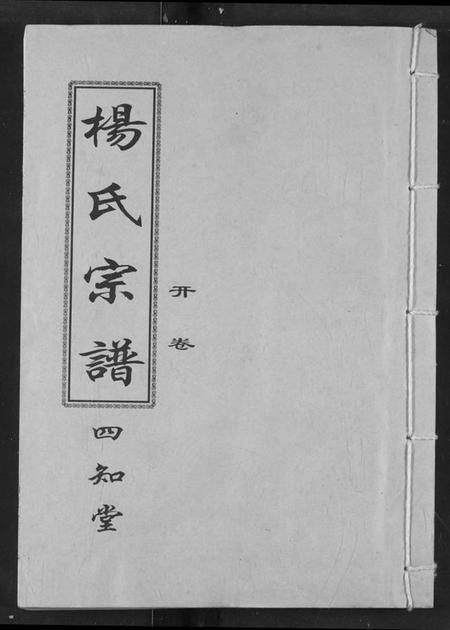 楊氏宗譜
开卷
四知堂